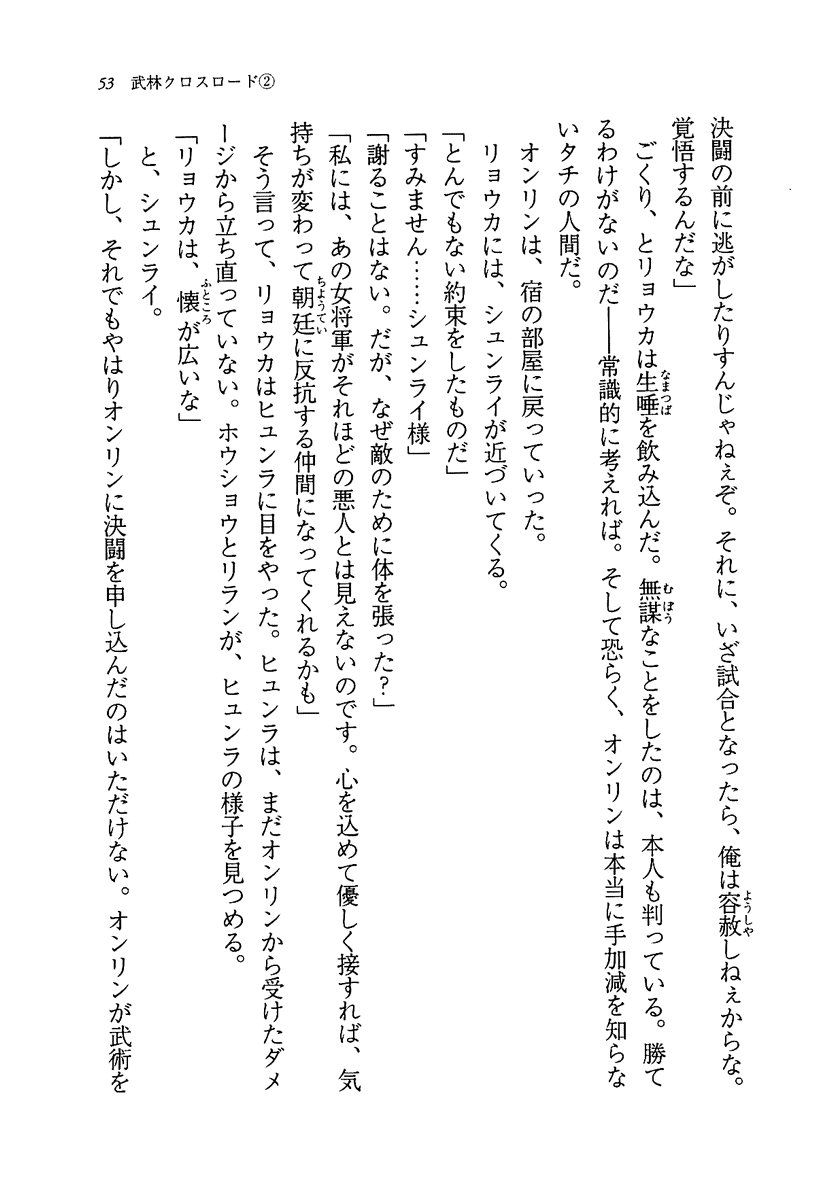 53 武林クロスロード②
決闘の前に逃がしたりすんじゃねぇぞ。それに、いざ試合となったら、俺は容赦しねぇからな。
覚悟するんだな」
ごくり、とリョウカは生唾を飲み込んだ。無謀なことをしたのは、本人も判っている。勝て
るわけがないのだ――常識的に考えれば。そして恐らく、オンリンは本当に手加減を知らな
いタチの人間だ。
オンリンは、宿の部屋に戻っていった。
リョウカには、シュンライが近づいてくる。
「とんでもない約束をしたものだ」
「すみません……シュンライ様」
「謝ることはない。だが、なぜ敵のために体を張った?」
「私には、あの女将軍がそれほどの悪人とは見えないのです。心を込めて優しく接すれば、気
持ちが変わって朝廷に反抗する仲間になってくれるかも」
そう言って、リョウカはヒュンラに目をやった。ヒュンラは、まだオンリンから受けたダメ
ージから立ち直っていない。ホウショウとリランが、ヒュンラの様子を見つめる。
「リョウカは、懐が広いな」
と、シュンライ。
「しかし、それでもやはりオンリンに決闘を申し込んだのはいただけない。オンリンが武術を